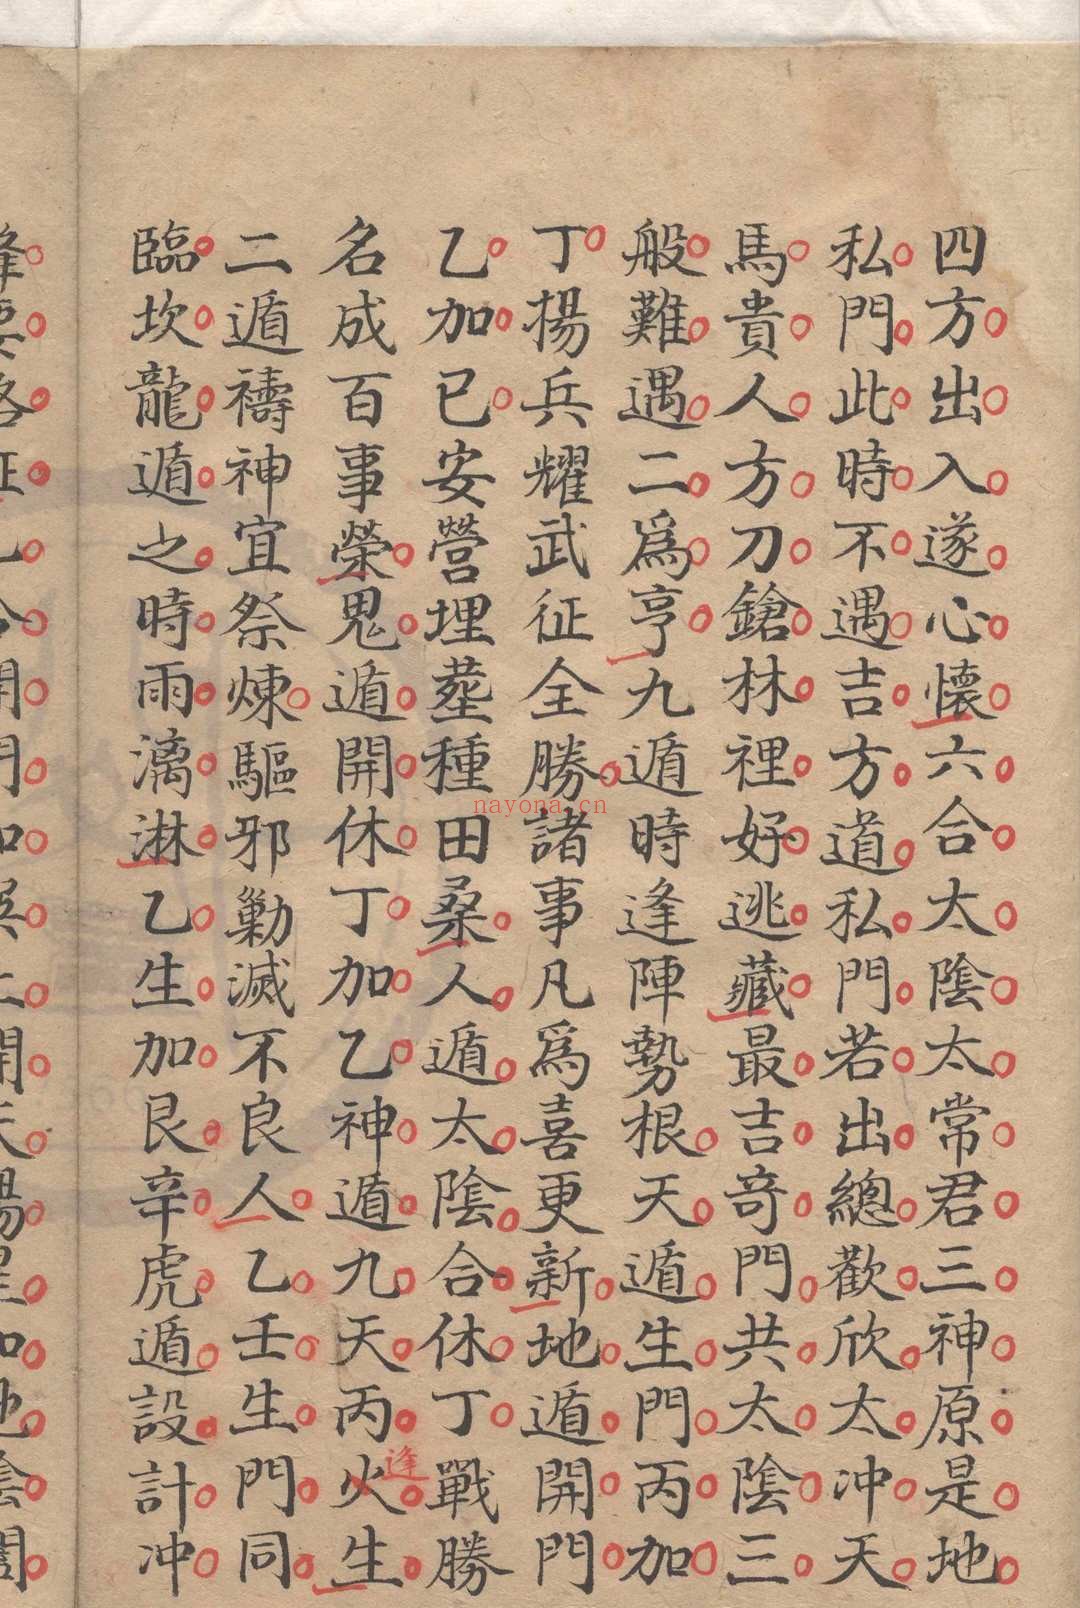 四方出入遂心懷六合太陰太常君三神原是地
私門此時不遇吉方道私門若出總歡欣太冲天
馬貴人方刀鎗林裡好逃藏最吉奇門共太陰三
般難遇二爲亨九遁時逢陣勢根天遁生門丙加
丁揚兵耀武征全勝諸事凡爲喜更新地遁開門
乙加已安營埋塟種田桑人遁太陰合休丁戰勝
名成百事榮鬼遁開休丁加乙神遁九天丙火生
逢
二遁禱神宜祭煉驅邪勦滅不良人乙壬生門同
臨坎龍遁之時雨漓淋乙生加艮辛虎遁設計冲
nayona.cn